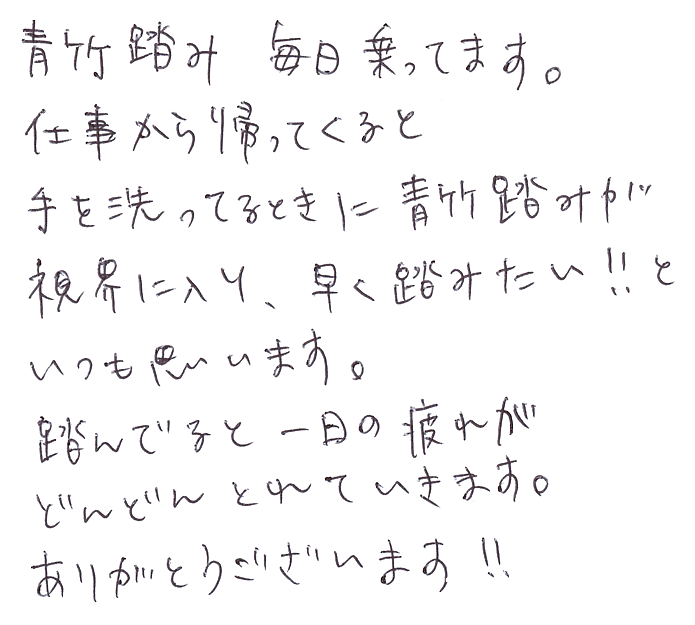 青竹踏み 毎日乗ってます。
仕事から帰ってくると
手を洗ってるときに青竹踏みが
視界に入り、早く踏みたい!!と
いつも思います。
踏んでると一日の疲れが
どんどんとれていきます。
ありがとうございます!!